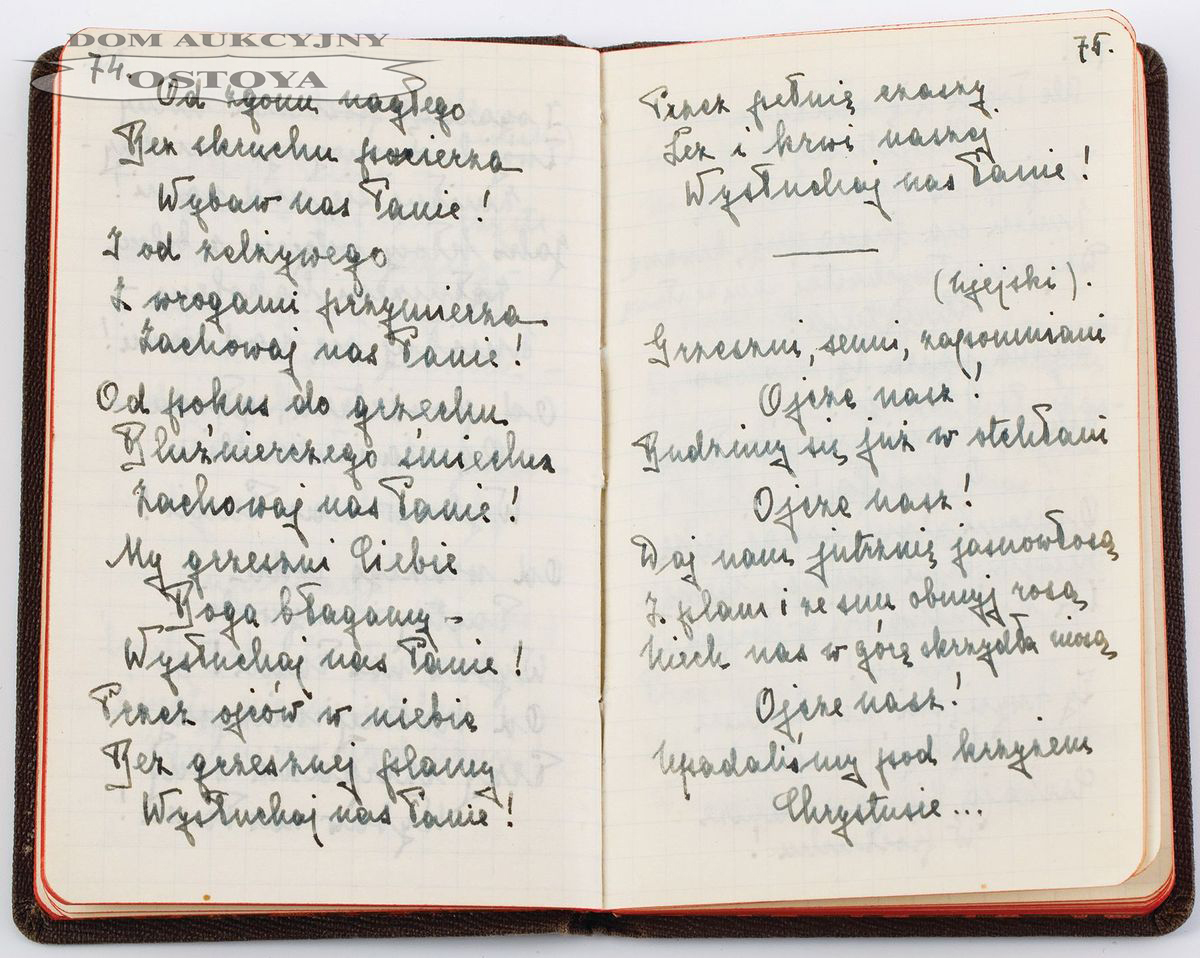 DOM AUKCYJNY
OSTOYA
74.
Od zgonu nagłego
Bez skruchu pacierza
Wybaw nas Panie!
I od zelżywego
Z wrogami przymierza
Zachowaj nas Panie!
Od pokus do grzechu
Bluźnierczego śmiechu
Zachowaj nas Panie!
My grzeszni Ciebie
Boga błagamy -
Wysłuchaj nas Panie!
Przez ojców w niebie
Bez grzesznej plamy
Wysłuchaj nas Panie!
75.
Przez pełnię czaszy
Łez i krwi naszej
Wysłuchaj nas Panie!
(Ujejski).
Grzeszni, senni, zapomniani
Ojcze nasz!
Budzimy się już w otchłani
Ojcze nasz!
Daj nam jutrznię jasnowłosą
I plam i ze snu obmyj rosą
Niech nas w górę skrzydła niosą
Ojcze nasz!
Upadaliśmy pod krzyżem
Chrystusie...